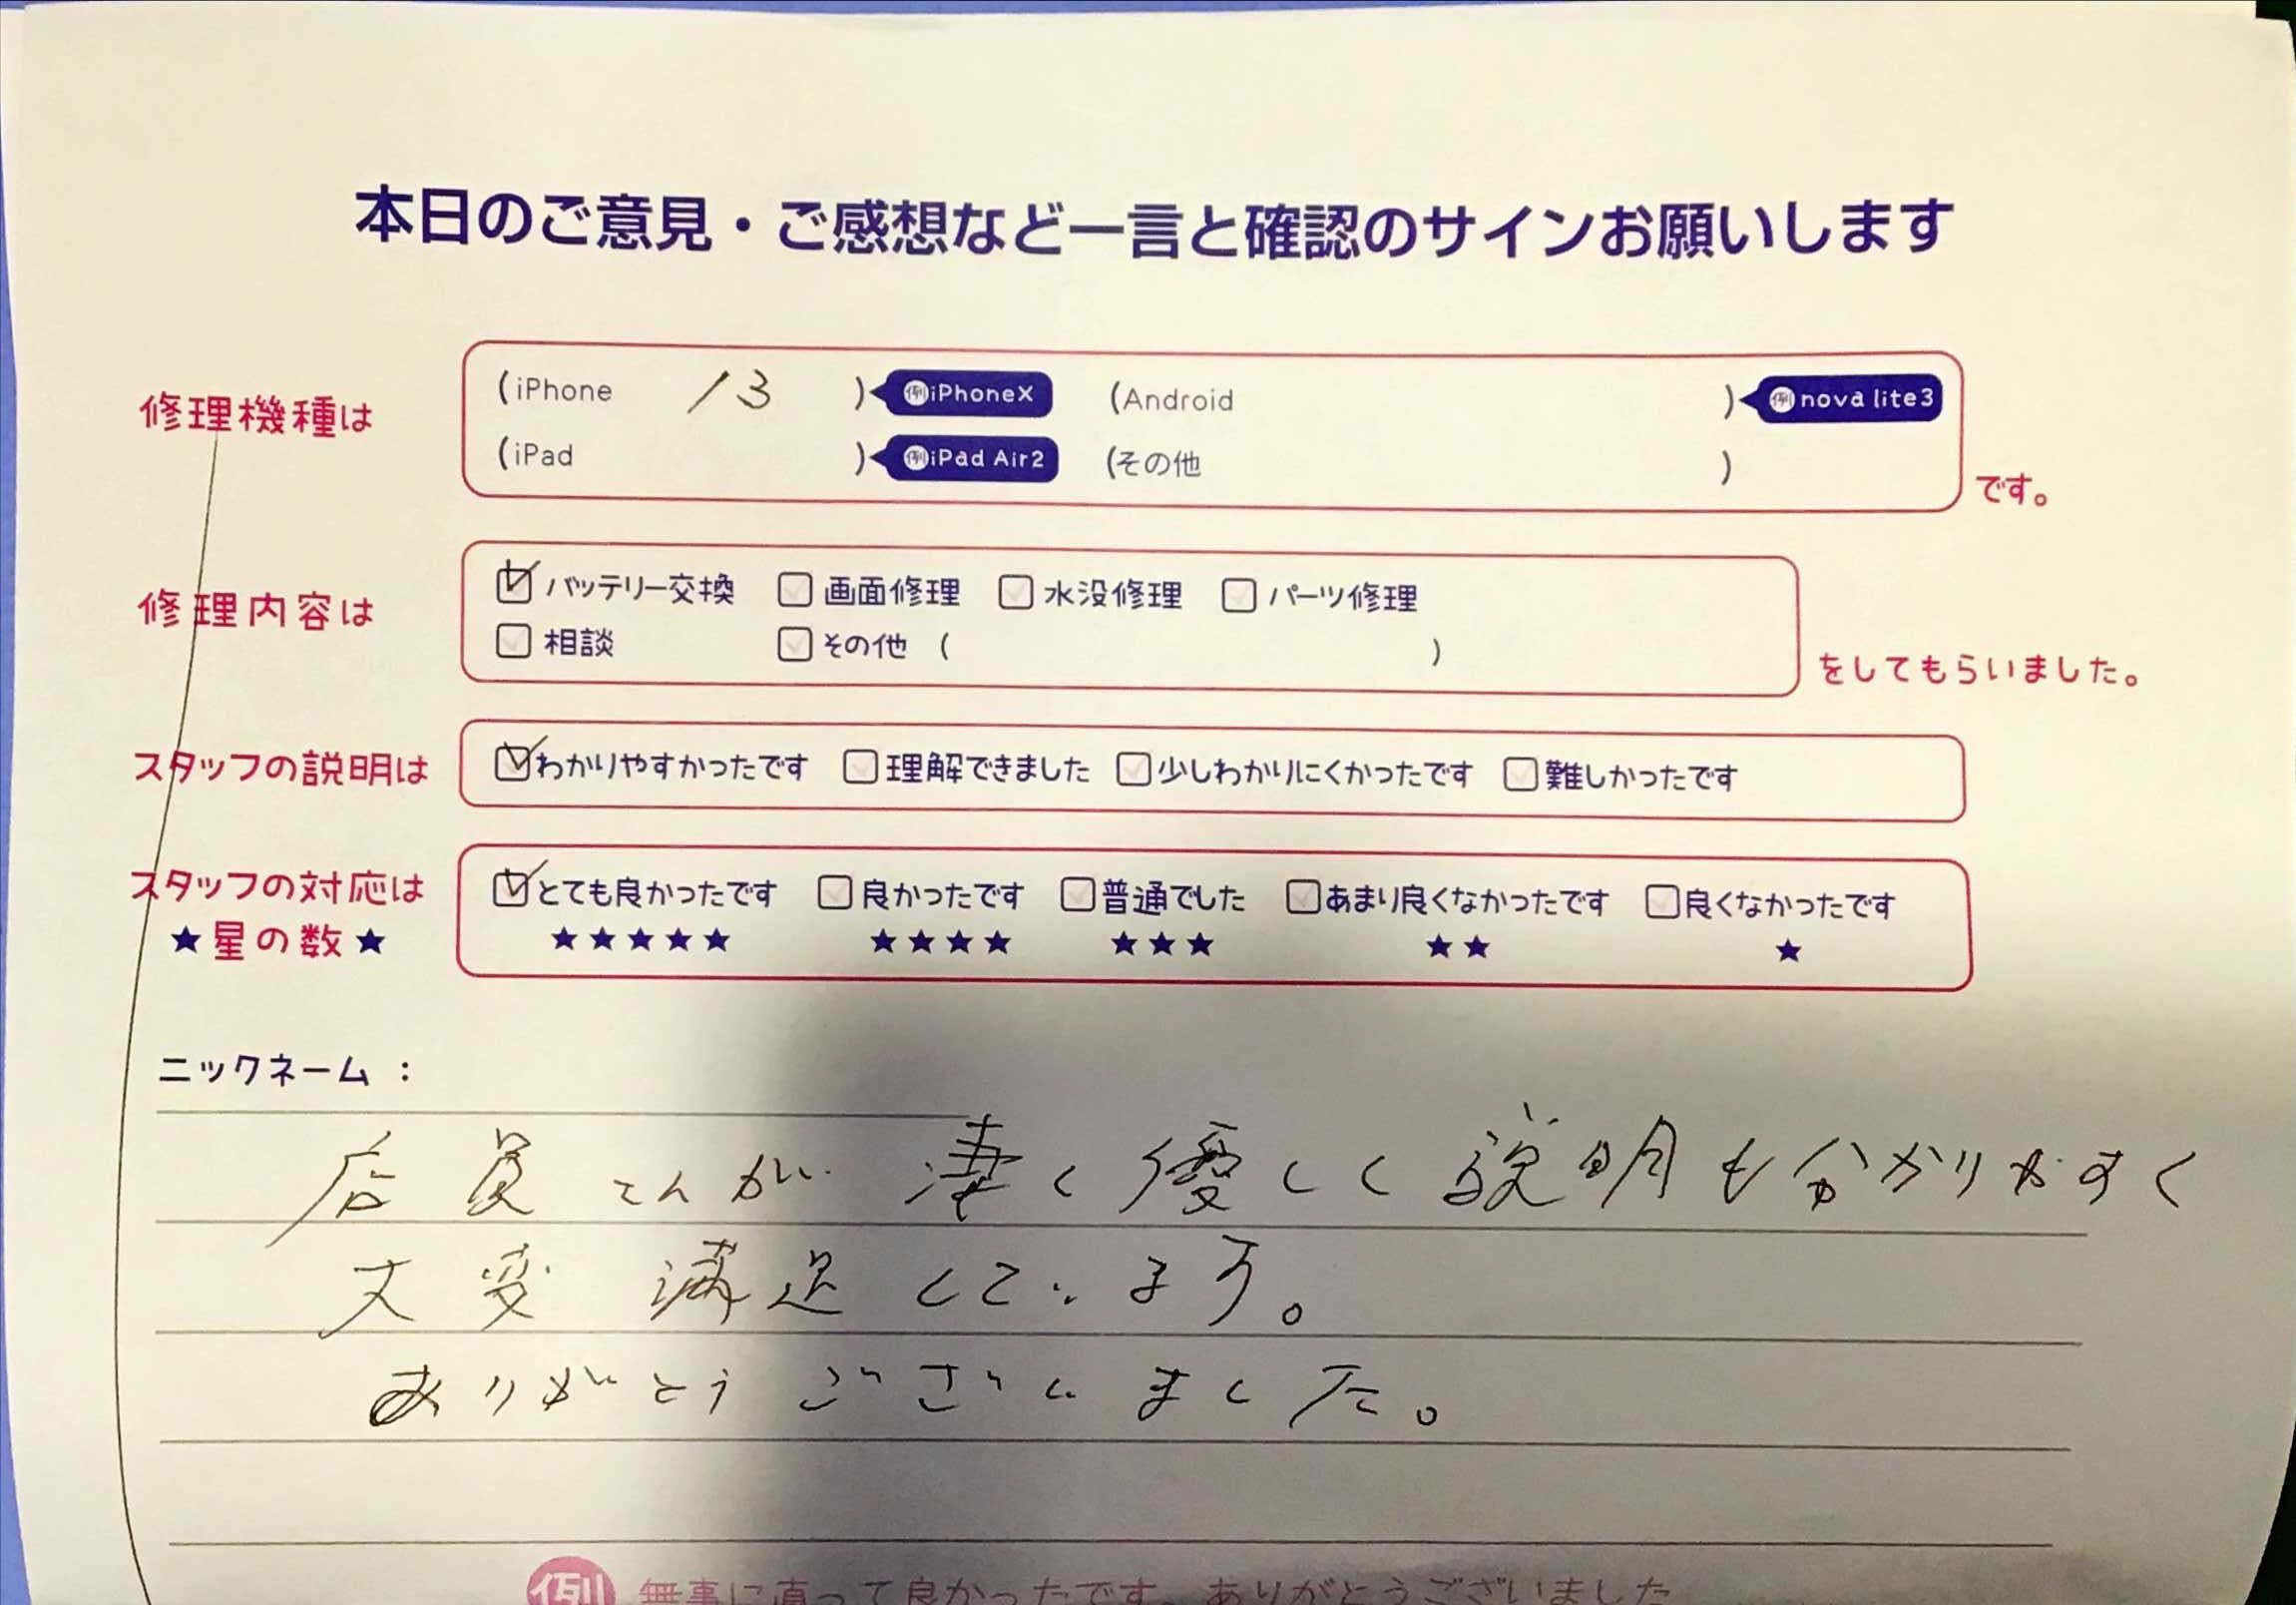 本日のご意見・ご感想など一言と確認のサインお願いします
修理機種は
(iPhone 13 ) 例iPhoneX (Android ) 例nova lite3
(iPad ) 例iPad Air2 (その他 )
です。
修理内容は
バッテリー交換 画面修理 水没修理 パーツ修理
相談 その他 ( )
をしてもらいました。
スタッフの説明は
わかりやすかったです 理解できました 少しわかりにくかったです 難しかったです
スタッフの対応は
★星の数★
とても良かったです 良かったです 普通でした あまり良くなかったです 良くなかったです
★★★★★ ★★★★ ★★★ ★★ ★
ニックネーム：
店員さんが凄く優しく説明も分かりやすく
大変満足しています。
ありがとうございました。
例 無事に直って良かったです。ありがとうございました